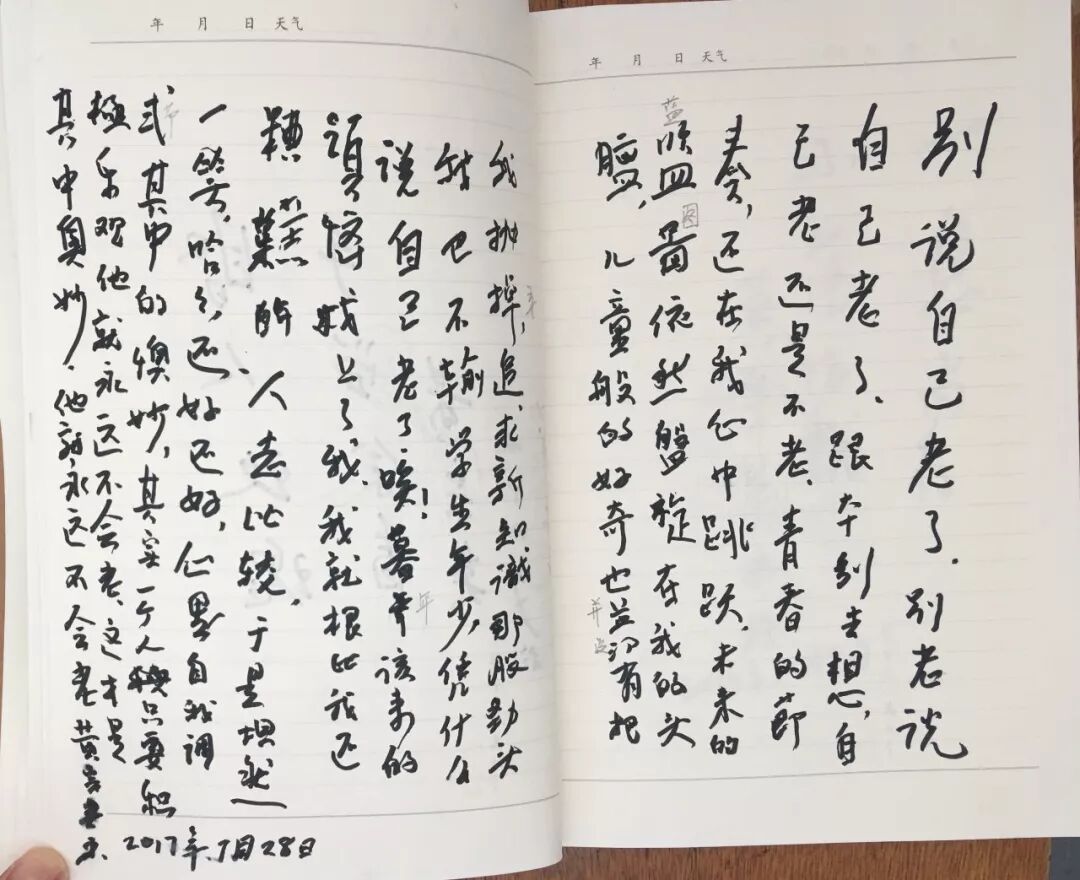 年 月 日 天气
别说自己老了.别老说
自己老了、跟本别去想,自
己老还是不老、青春的节
奏,还在我心中跳跃.未来的
蓝
图
依然盘旋在我的头
儿童般的好奇也并没有把
年 月 日 天气
我抛掉,追求新知识那股劲头
不输学生年少,凭什么
说自己老了.唉!暮年该来的
年
找上了我、我就根比我还
人去比较,于是坦然
一笑,哈々,还好还好,心里自我调
节
式,其中的懊妙,其实一个人只要积
極乐观他就永远不会老、这才是
其中奥妙.他就永远不会老黄
2017年7月28日